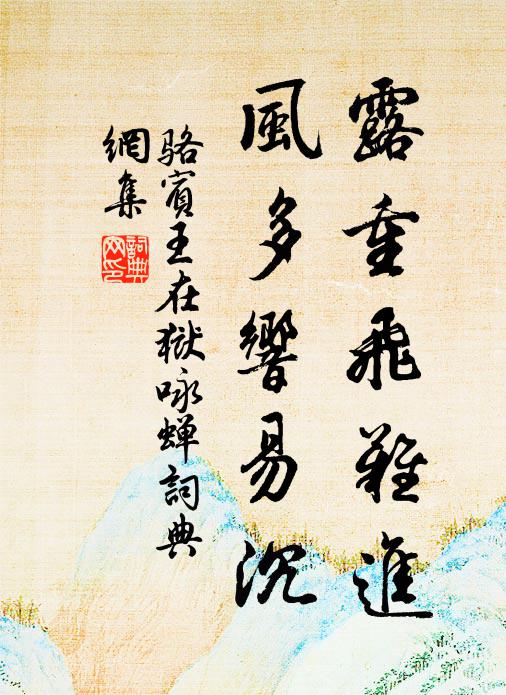 露重飛難進
風多響易沉
骆賓王在獄咏蝉詞典
網集
詞典
网印